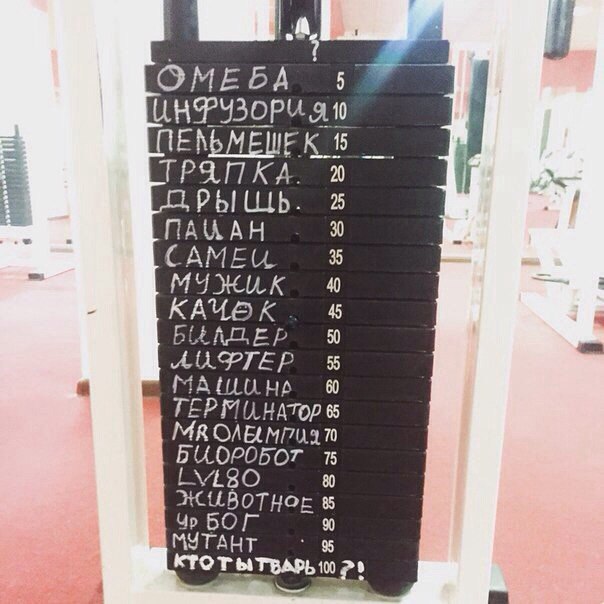 ?
ОМЕБА 5
ИНФУЗОРИЯ 10
ПЕЛЬМЕШЕК 15
ТРЯПКА 20
ДРЫЩЬ 25
ПАЦАН 30
САМЕЦ 35
МУЖИК 40
КАЧОК 45
БИЛДЕР 50
ЛИФТЕР 55
МАШИНА 60
ТЕРМИНАТОР 65
MR ОЛЫМПИЯ 70
БИОРОБОТ 75
LVL80 80
ЖИВОТНОЕ 85
УР БОГ 90
МУТАНТ 95
КТО ТЫ ТВАРЬ 100 ?!